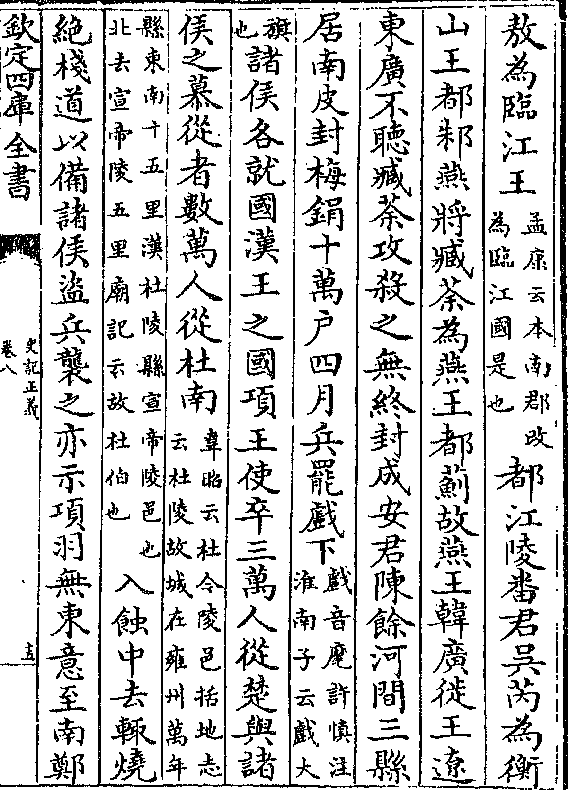 敖為臨江王孟康云本南郡改為臨江國是也都江陵番君吳芮為衡
山王都邾燕將臧荼為燕王都薊故燕王韓廣徙王遼
東廣不聽臧荼攻殺之無終封成安君陳餘河間三縣
居南皮封梅鋗十萬户四月兵罷戲下戲音麾許慎注淮南子云戲大
旗也諸侯各就國漢王之國項王使卒三萬人從楚與諸
侯之慕從者數萬人從杜南韋昭云杜今陵邑括地志云杜陵故城在雍州萬年
縣東南十五里漢杜陵縣宣帝陵邑也北去宣帝陵五里廟記云故杜伯也入蝕中去輒燒
絶棧道以備諸侯盜兵襲之亦示項羽無東意至南鄭
欽定四庫全書
史記正義
卷八
十五